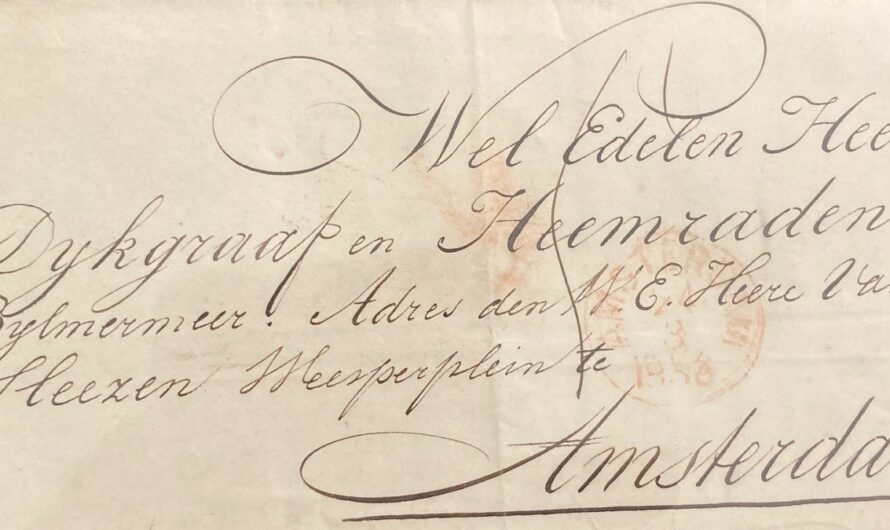 Wel Edelen Hee
Dykgraaf en Heemraden
Bylmermeer. Adres den W. E. Heere Va
Heezen Weesperplein te
Amsterda
1858